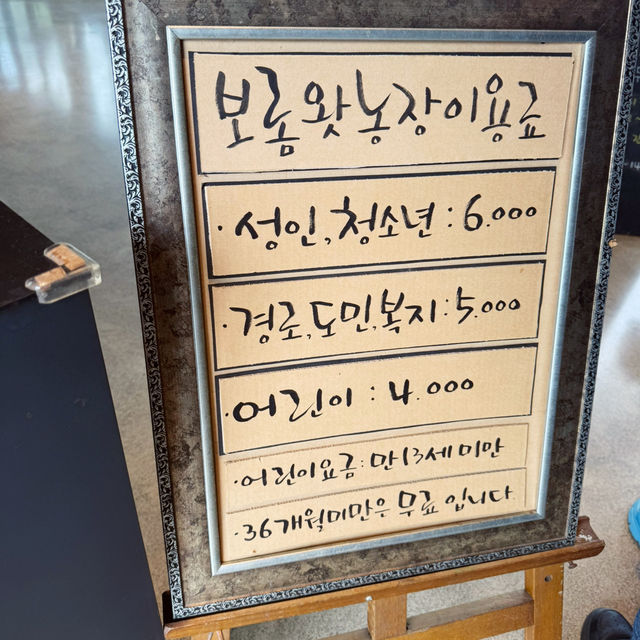 보롬왓농장이용료
·성인,청소년:6.000
·경로,도민,복지:5.000
·어린이:4.000
·어린이요금:만13세미만
·36개월미만은 무료 입니다.